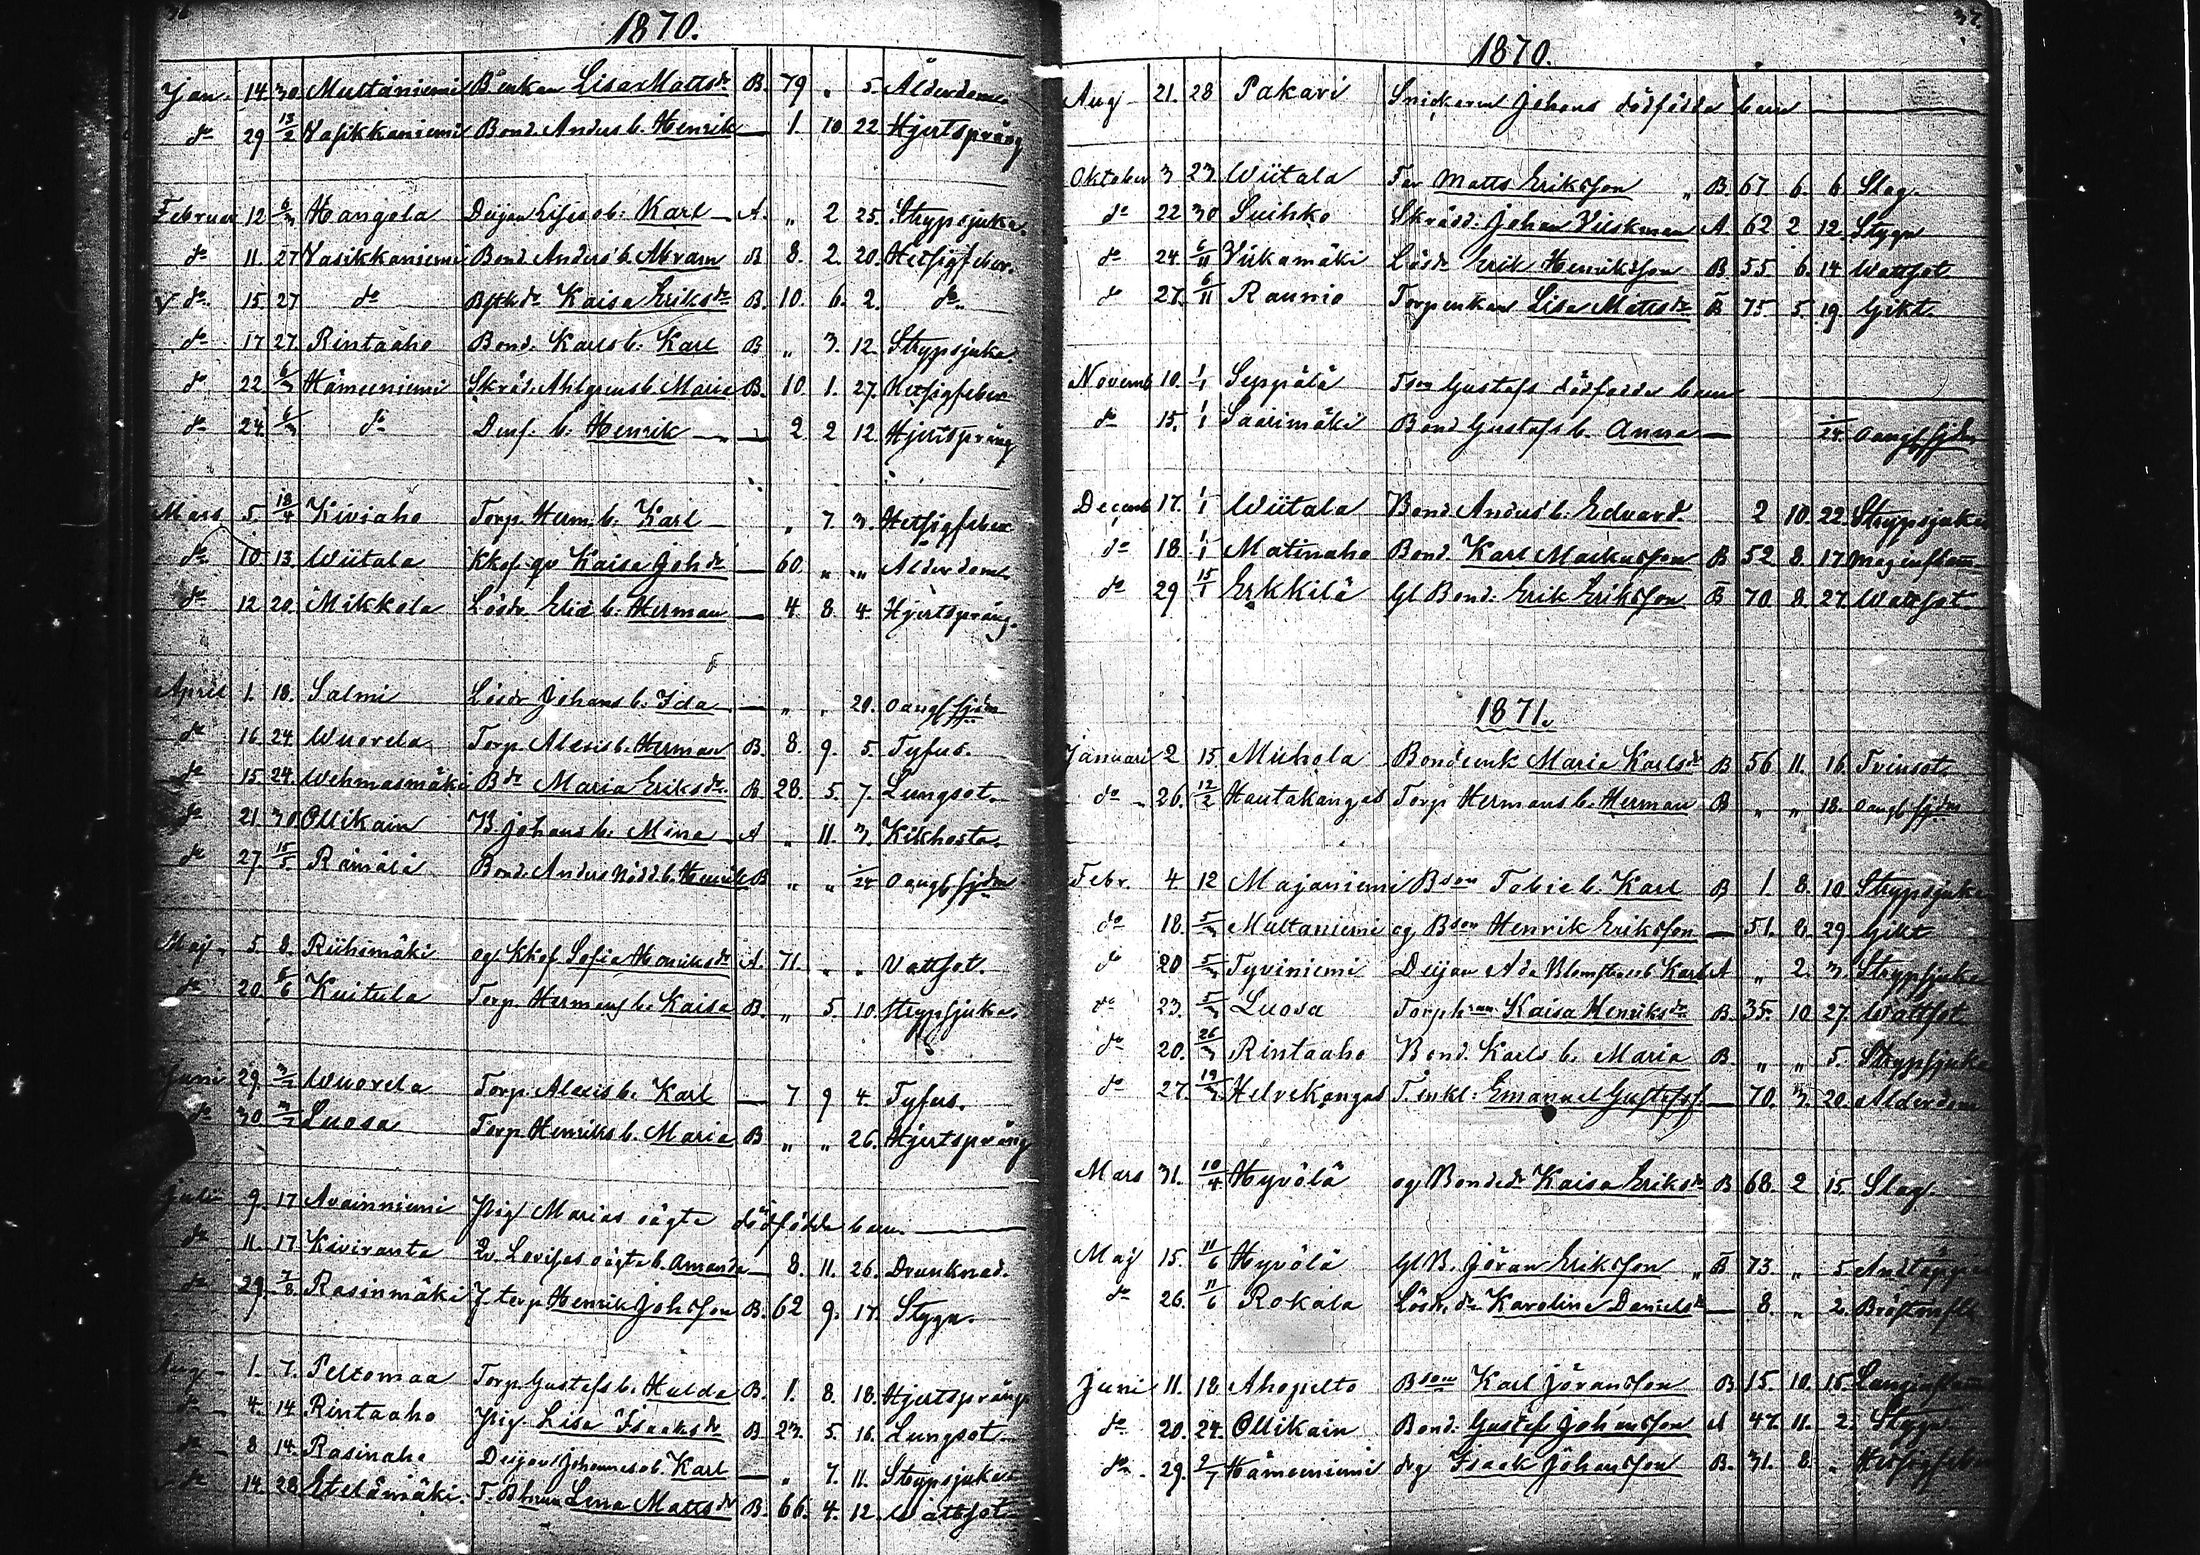 36
1870.
Jan. 14. 30 Multaniemi B enkan Lisa Mattsdr B. 79 " 5. Ålderdom.
do 29 13/2 Vasikkaniemi Bond. Anders b. Henrik — 1. 10 22 Hjertsprång
Februar 12 6/3 Hangola Deijan ob. Karl A. " 2 25. Strypsjuka.
do 11. 27 Vasikkaniemi Bond Anders b. Abram B 8. 2. 20. Hetsigfeber.
v do 15. 27 do Kaisa Eriksdr B. 10. 6. 2. do
do 17 27. Rintaaho Bond. Karls b. Karl B " 3. 12. Strypsjuka.
do 22. 6/3 Hämeeniemi Skräd. Ahlgrens b. Maria B. 10. 1. 27. Hetsigfeber
do 24. 6/3 do Dens. b. Henrik — 2 2 12. Hjertsprång
Mars 5. 18/4 Kiviaho Torp. Herm. b. Karl " 7. 3. Hetsigfeber
do 10. 13. Wiitala Kkof. qv Kaisa Johdr — 60. " " Alderdom.
do 12 20. Mikkola Lösdr b. Herman — 4 8. 4. Hjertsprång.
April 1. 18. Salmi Lösdr Johans b. Ida — " " 20. Oang. sjdm
do 16. 24. Wuorela Torp. Alexis b. Herman B. 8. 9. 5. Tyfus.
do 15. 24. Wehmasmäki Bdr Maria Eriksdr. B. 28. 5. 7. Lungsot.
do 21 30 Ollikain B Johans b. Mina A " 11. 3. Kikhosta.
do 27. 15/5 Rämälä Bond. Anders Nödd. b. Henrik B " " 1/24 Oangf sjdm
Maj 5. 8. Riihimäki og Kkof Sofia Henriksdr A. 71. " " Vattsot.
do 20. 8/6 Kuitula Torp. Hermans b. Kaisa B. " 5. 10. Strypsjuka.
Juni 29. 3/7 Wuorela Torp. Alexis b. Karl — 7 9 4. Tyfus.
do 30. 3/7 Luosa Torp Henriks b. Maria B " " 26. Hjertsprång
Juli 9. 17 Avainniemi Pig Marias oägta dödfödda barn.
do 11. 17. Kiviranta Qv. Lovisas oägta b. Amanda — 8. 11. 26. Drunknad.
do 29. 7/8 Rasinmäki J. torp Henrik Johsson B. 62 9. 17. Stygn.
Aug 1. 7. Peltomaa Torp. Gustafs b. Hulda B. 1. 8. 18. Hjertsprång
do 4. 14 Rintaaho Pig. Lisa Isaksdr B 23. 5. 16. Lungsot
do 8 14. Rasinaho Deijans Johannes ob. Karl — " 7. 11. Strypsjuka
do 14. 28 Etelämäki. T. Bhnun Lena Mattsdr B. 66. 4. 12. Wattsot
37
1870.
Aug 21. 28 Pakari Snickaren Johans dödfödda barn
Oktober 3 23. Wiitala Far Matts Eriksson " B. 67. 6. 6. Slag.
do 22. 30 Suihko Skräd. Johan A. 62 2 12. Stygn
do 24. 6/11 Virkamäki Lösdr Erik Henriksson B. 55. 6. 14 Wattsot
do 27. 6/11 Raunio Torpenkan Lisa Mattsdr B 75. 5. 19. Gikt.
Novemb 10. 1/1 Seppälä Tson Gustafs dödfödde barn
do 15. 1/1 Saarimäki Bond Gustafs b. Anna — 1/24 Oangf sjdm
Decemb 17. 1/1 Wiitala Bond Anders b. Edvard. 2 10. 22. Strypsjuka
do 18. 1/1 Matinaho Bond. Karl Markusson B 52 8. 17 Maginflam
do 29 15/1 Erkkilä Gl Bond. Erik Eriksson B 70. 8. 27. Wattsot.
1871.
Januari 2 15. Muhola Bondenk Maria Karlsdr B 56 11. 16. Tvinsot.
do 26. 12/2 Hautakangas Torp Hermans b. Herman B " " 18. Oangf sjdm
Febr. 4. 12 Majaniemi Bson Tobis b. Karl B 1. 8. 10. Strypsjuka
do 18. 5/3 Multaniemi og Bson Henrik Eriksson — 51. 8. 29. Gikt
do 20 5/3 Tyviniemi Deijan Ada ob Karl A " 2. 3. Strypsjuka
do 23. 5/3 Luosa Torphun Kaisa Henriksdr B. 35. 10 27. Wattsot
do 20. 26/3 Rintaaho Bond. Karls b. Maria B. " " 5. Strypsjuka
do 27. 19/3 Helvekangas T. inkl. Emanuel Gustafss. — 70. 3. 20. Alderdom
Mars 31. 10/4 Hyvölä og Bondedr Kaisa Eriksdr B 68. 2 15. Slag.
Maj 15. 11/6 Hyvölä Gl B. Jöran Eriksson " B 73. " 5. Andtäppa
do 26. 11/6 Rokala Lösdr. dr Karolina Danielsdr — 8. " 2. Bröstinfl
Juni 11. 18. Ahopelto Bson Karl Jöransson B 15. 10. 15. Lunginflam
do 20. 24. Ollikain Bond. Gustaf Johansson A 47. 11. 2. Stygn
do 29. 2/7 Hämeeniemi drg Isaak Johansson B. 31. 8. " Hetsigfeber